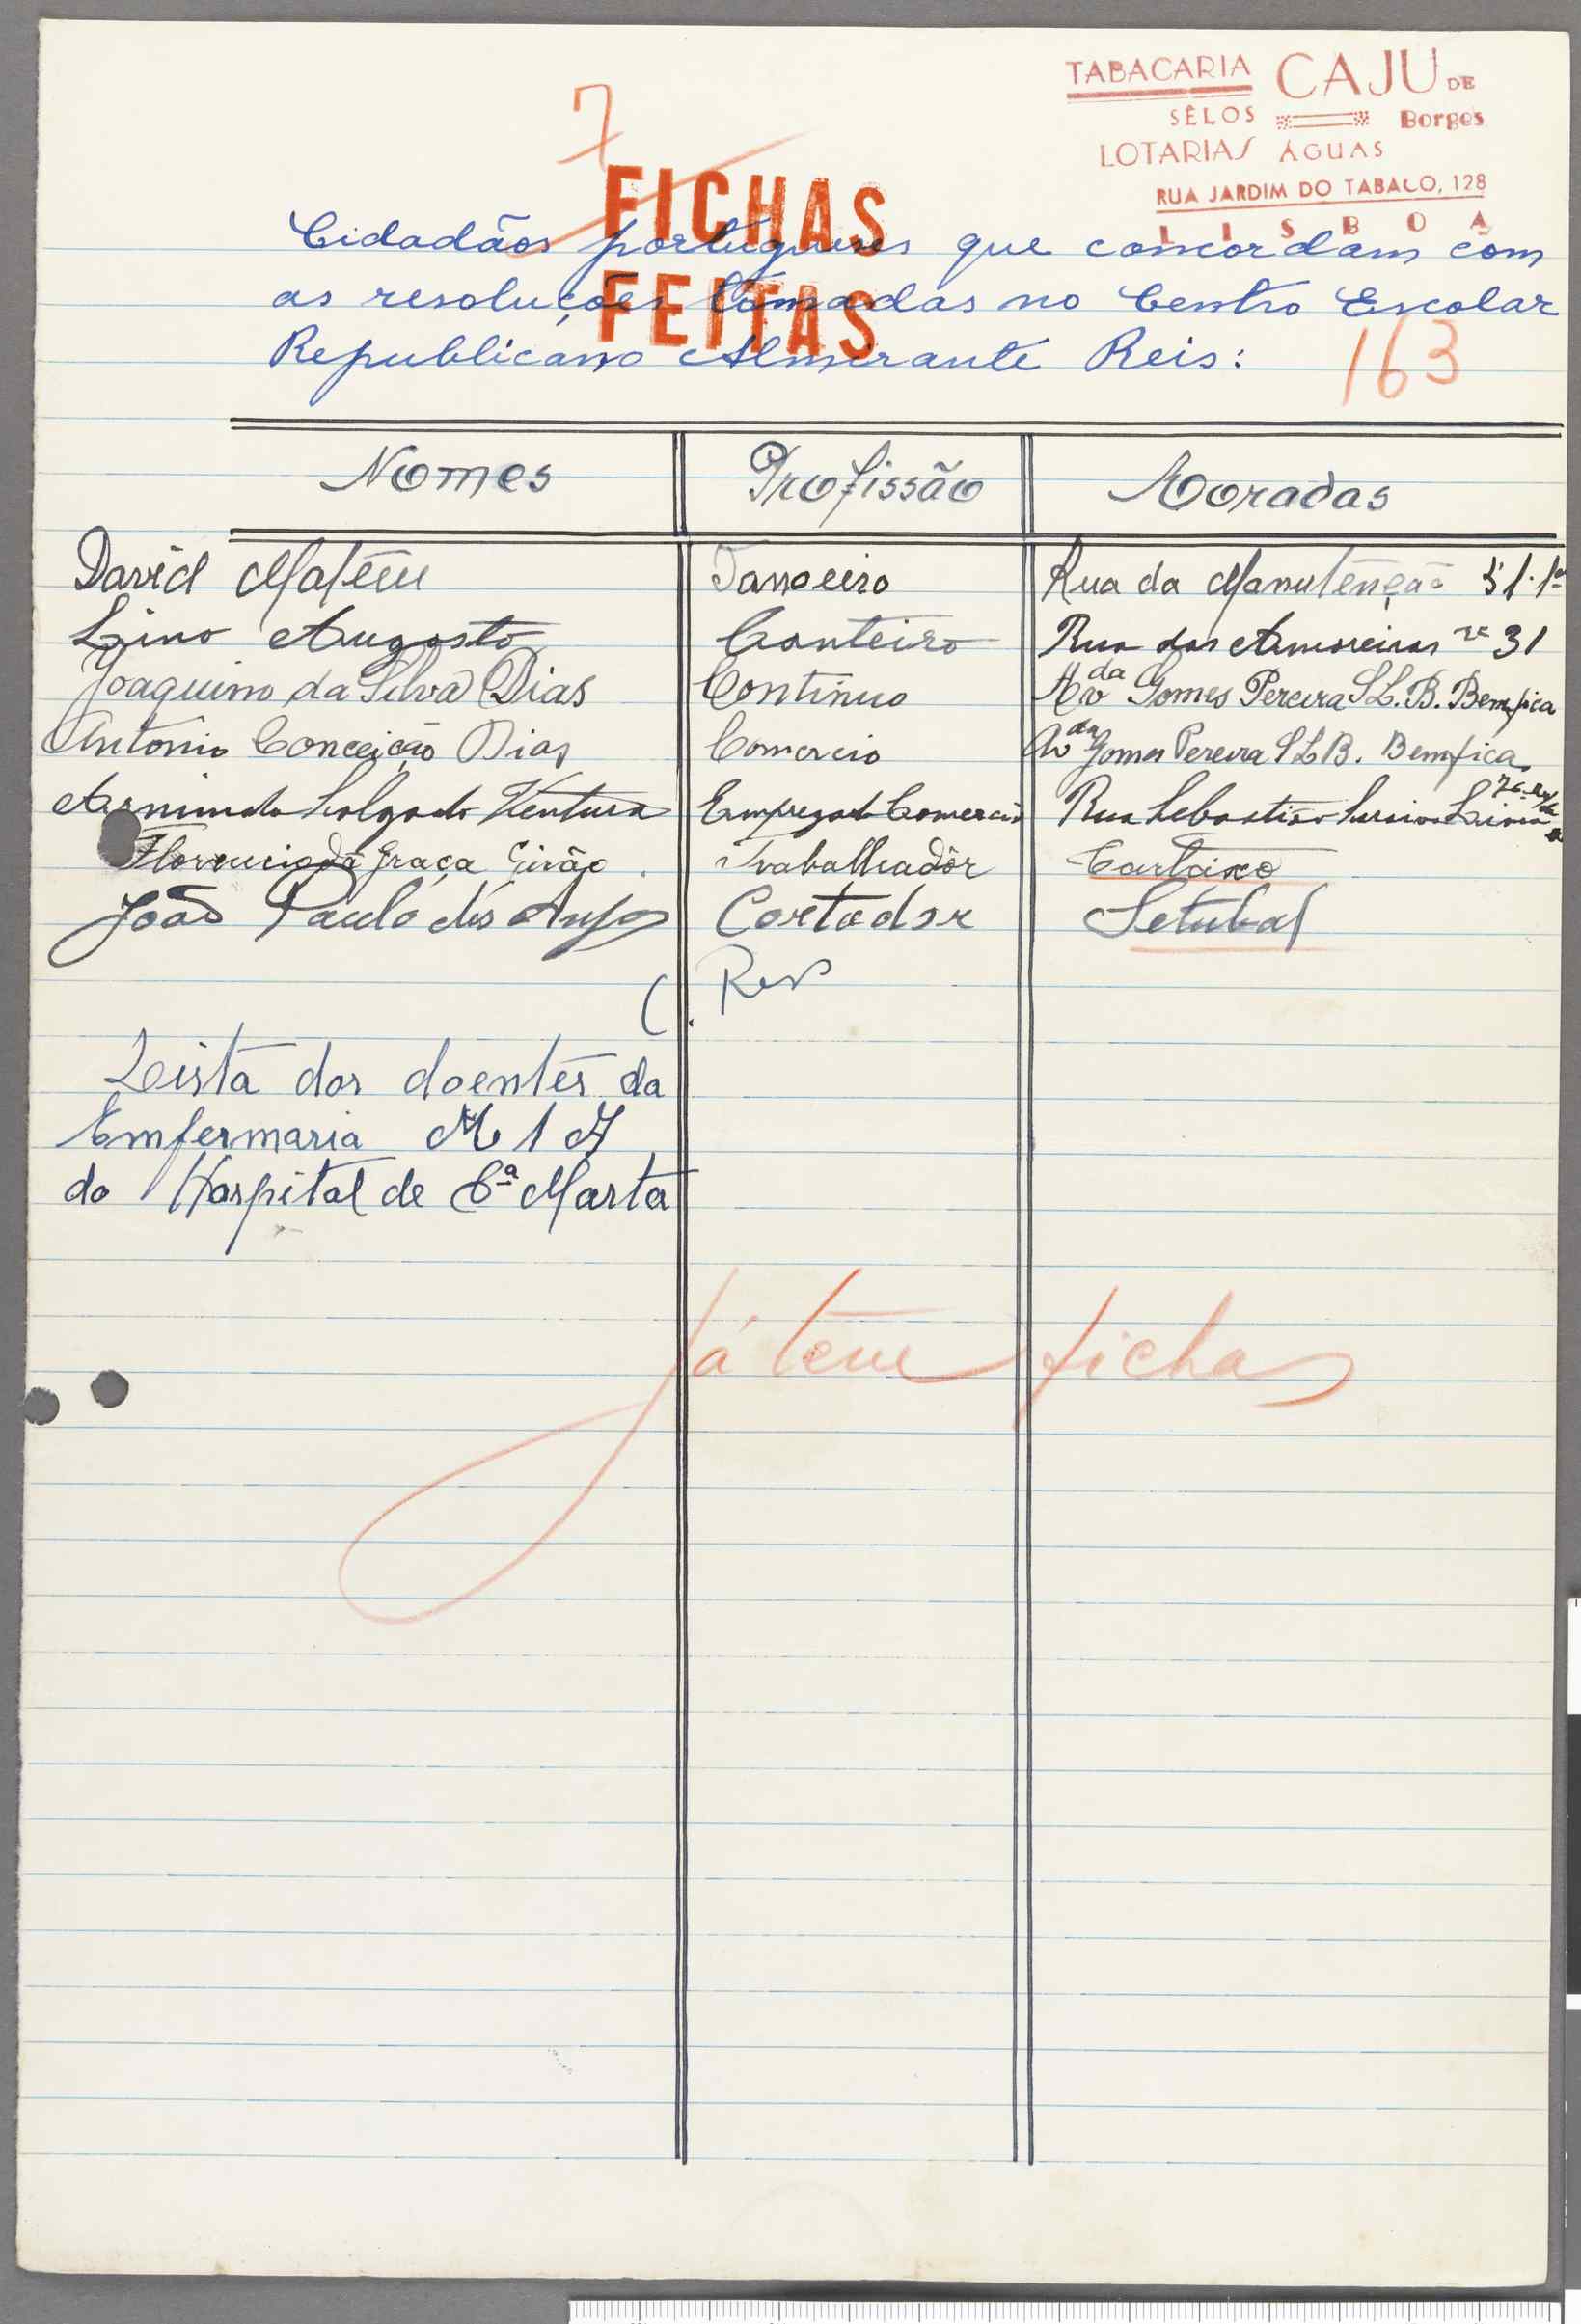 TABACARIA CAJU DE
SÊLOS Borges
LOTARIAS ÁGUAS
RUA JARDIM DO TABACO, 128
LISBOA
7
FICHAS
FEITAS
Cidadãos portugueses que concordam com
as resoluções tomadas no Centro Escolar
Republicano Almirante Reis:
163
Nomes Profissão Moradas
David Mateus Tanoeiro Rua da Manutenção 51-1º
Lino Augosto Canteiro Rua das Amoreiras nº 31
Joaquim da Silva Dias Continuo Avda Gomes Pereira S.L.B. Bemfica
Antonio Conceição Dias Comercio Avda Gomes Pereira SLB. Bemfica
Armindo Salgado Ventura Empregado Comercio Rua Sebastião Saraiva Lima
Florencio da Graça Girão Trabalhadôr Cartaxo
João Paulo dos Anjos Cortador Setubal
Lista dos doentes da
Emfermaria M 1 A
do Hospital de Sª Marta
Já tem fichas